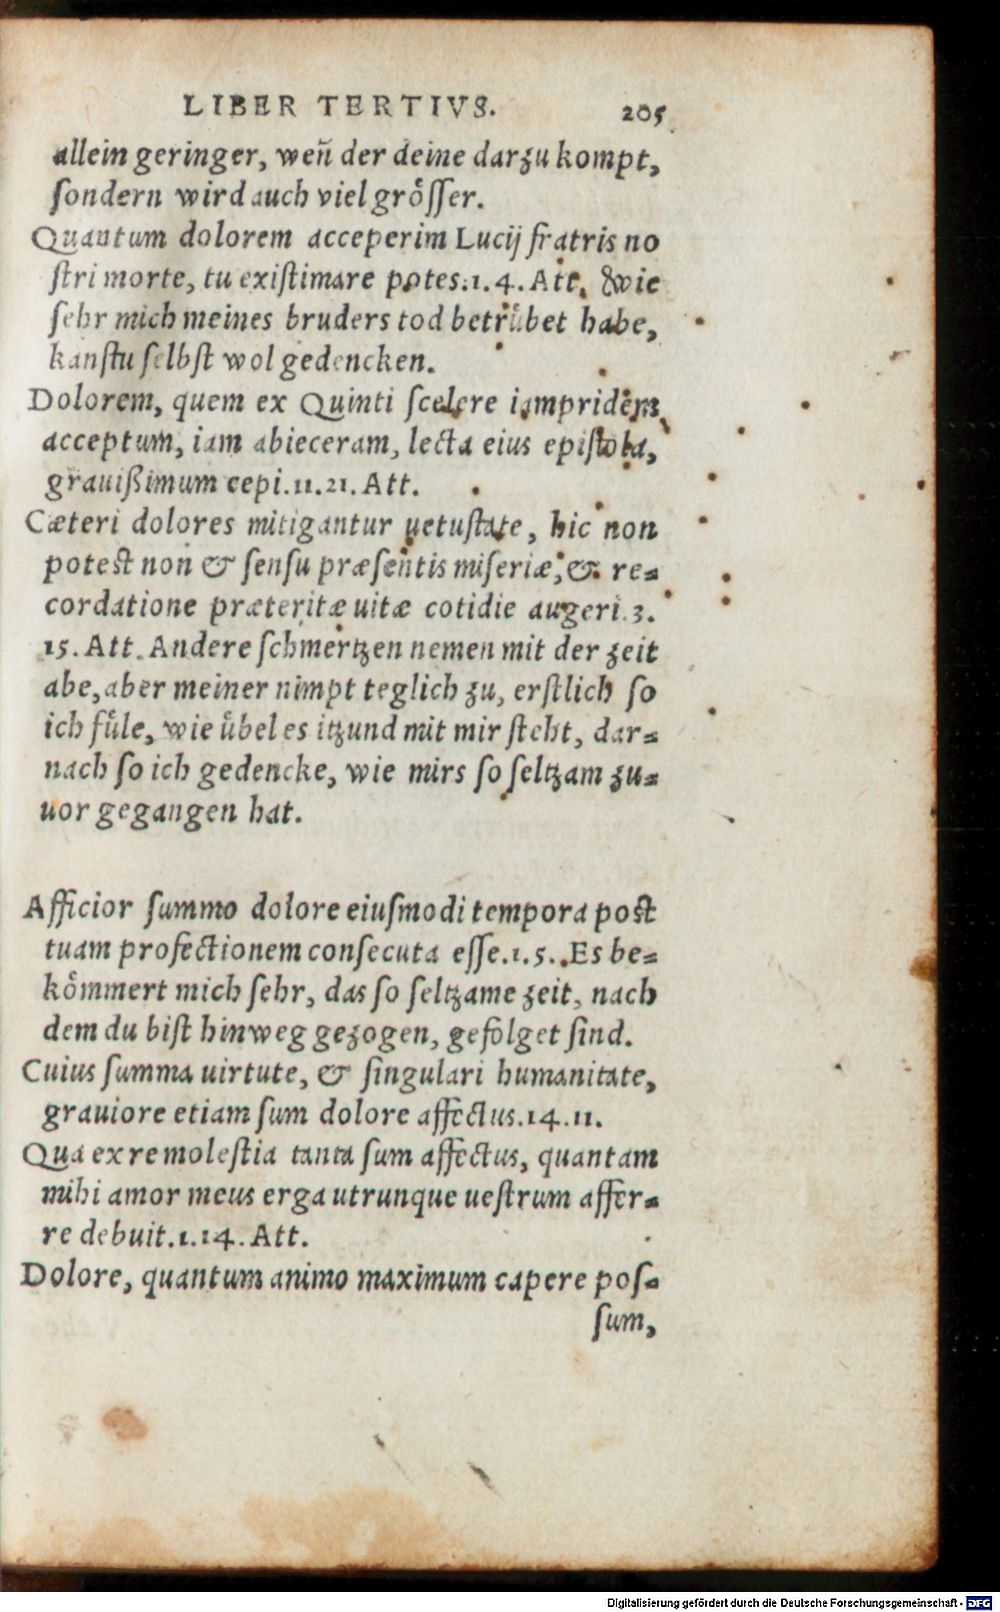 LIBER TERTIVS. 205
allein geringer, weñ der deine darzu kompt,
ſondern wird auch viel gröſſer.
Quantum dolorem acceperim Lucij fratris no
ſtri morte, tu exiſtimare potes.1.4. Att. Wie
ſehr mich meines bruders tod betrübet habe,
kanſtu ſelbſt wol gedencken.
Dolorem, quem ex Quinti ſcelere iampridem
acceptum, iam abieceram, lecta eius epiſtola,
grauißimum cepi.11.21. Att.
Cæteri dolores mitigantur uetuſtate, hic non
poteſt non & ſenſu præſentis miſeriæ, & re=
cordatione præteritæ uitæ cotidie augeri.3.
15. Att. Andere ſchmertzen nemen mit der zeit
abe, aber meiner nimpt teglich zu, erſtlich ſo
ich füle, wie übel es itzund mit mir ſteht, dar=
nach ſo ich gedencke, wie mirs ſo ſeltzam zu=
uor gegangen hat.
Afficior ſummo dolore eiuſmodi tempora poſt
tuam profectionem conſecuta eſſe.1.5. Es be=
kömmert mich ſehr, das ſo ſeltzame zeit, nach
dem du biſt hinweg gezogen, gefolget ſind.
Cuius ſumma uirtute, & ſingulari humanitate,
grauiore etiam ſum dolore affectus.14.11.
Qua ex re moleſtia tanta ſum affectus, quantam
mihi amor meus erga utrunque ueſtrum affer=
re debuit.1.14. Att.
Dolore, quantum animo maximum capere poſ=
ſum,
Digitalisierung gefördert durch die Deutsche Forschungsgemeinschaft - DFG